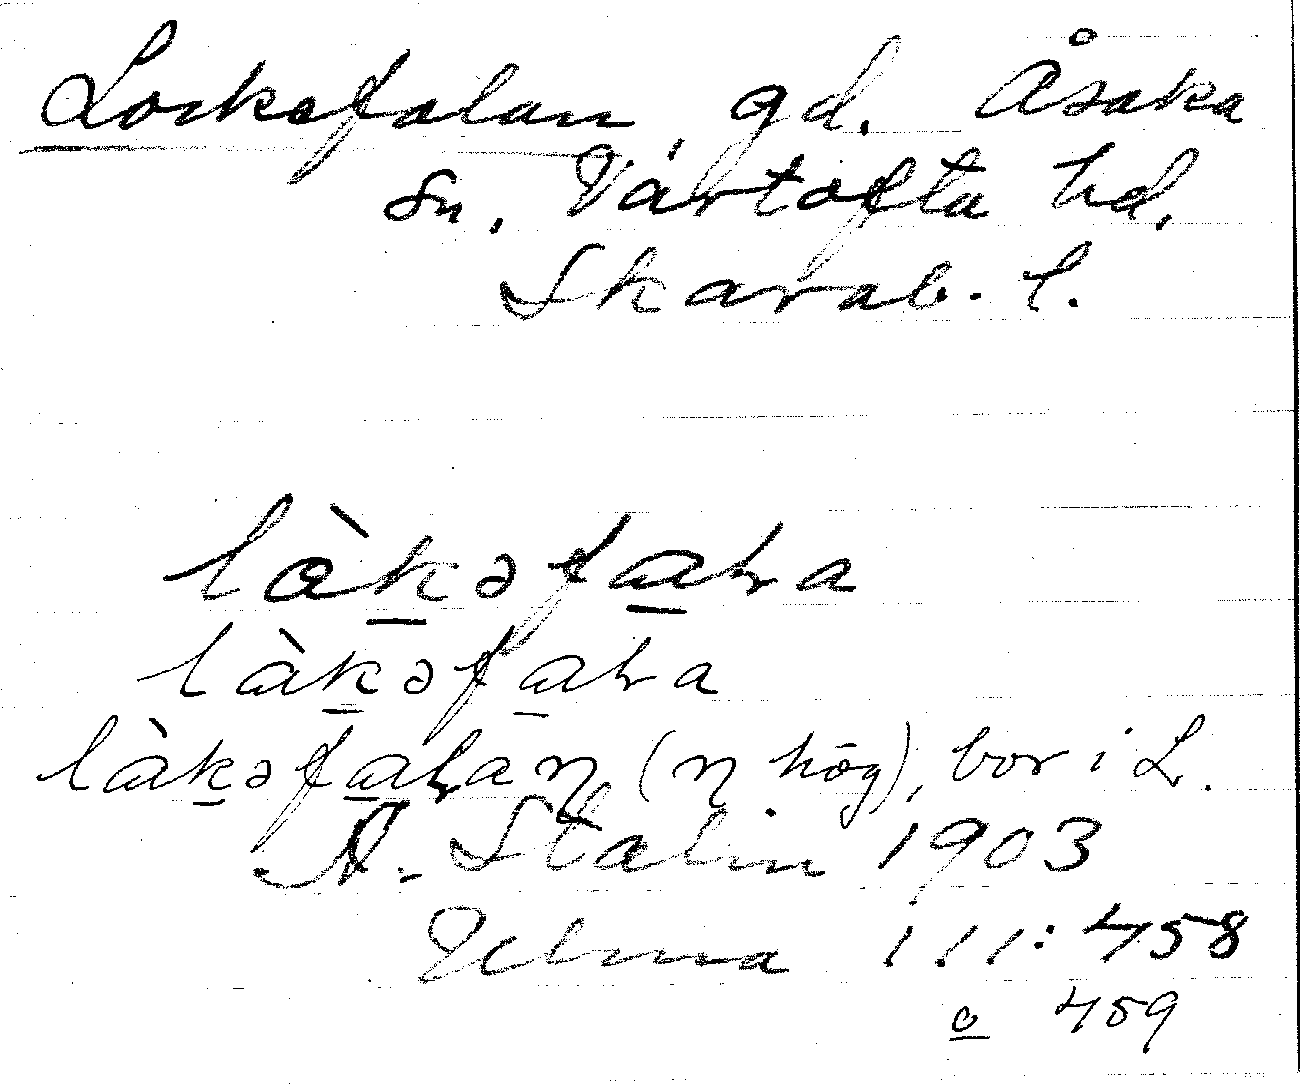 Lockefalan, gd. Åsaka
sn. Vartofta hd.
Skarab. l.
làkəfaɫa
làkəfaɫa
làkəfaɫan (n hög), bor i L.
A. Stalin 1903
Ulma 111:458
o 459